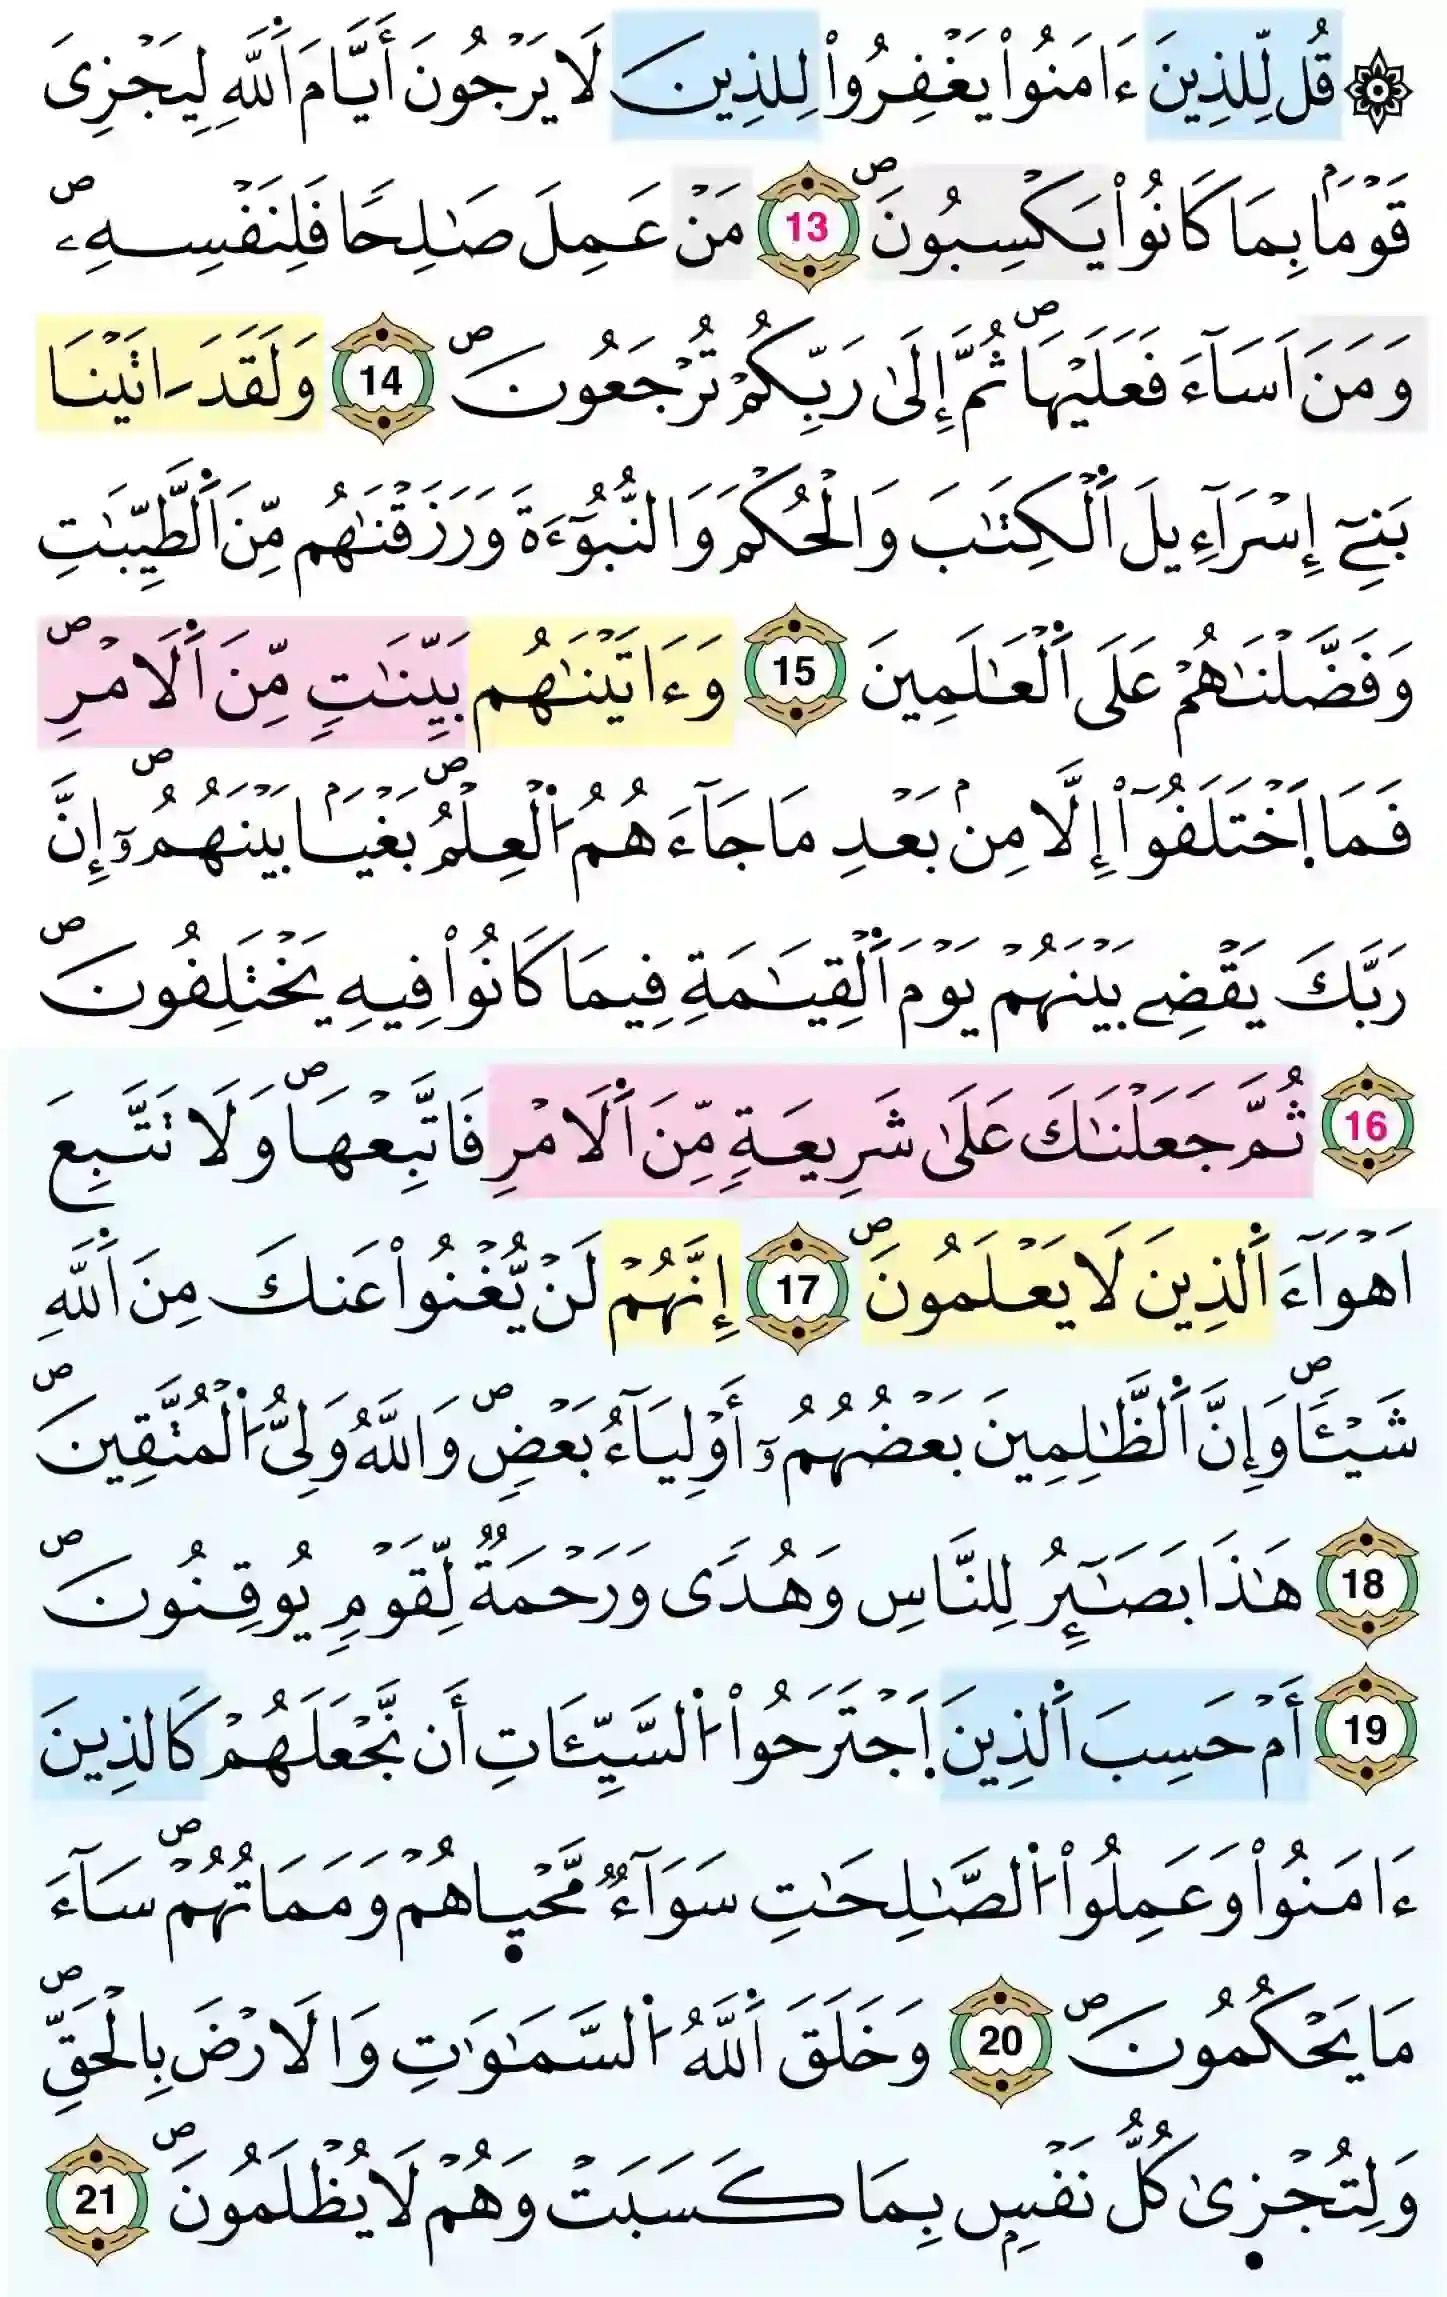 ۞ قُل لِّلذِينَ ءَامَنُواْ يَغْفِرُواْ لِلذِينَ لَا يَرْجُونَ أَيَّامَ اَ۬للَّهِ لِيَجْزِىَ
قَوْماَۢ بِمَا كَانُواْ يَكْسِبُونَۖ 13 مَنْ عَمِلَ صَٰلِحاٗ فَلِنَفْسِهِۦۖ
وَمَنَ اَسَآءَ فَعَلَيْهَاۖ ثُمَّ إِلَىٰ رَبِّكُمْ تُرْجَعُونَۖ 14 وَلَقَدَ اٰتَيْنَا
بَنِےٓ إِسْرَآءِيلَ اَ۬لْكِتَٰبَ وَالْحُكْمَ وَالنُّبُوٓءَةَ وَرَزَقْنَٰهُم مِّنَ اَ۬لطَّيِّبَٰتِ
وَفَضَّلْنَٰهُمْ عَلَى اَ۬لْعَٰلَمِينَ 15 وَءَاتَيْنَٰهُم بَيِّنَٰتٖ مِّنَ اَ۬لَامْرِۖ
فَمَا اَ۪خْتَلَفُوٓاْ إِلَّا مِنۢ بَعْدِ مَا جَآءَهُمُ اُ۬لْعِلْمُۖ بَغْياَۢ بَيْنَهُمُۥٓۖ إِنَّ
رَبَّكَ يَقْضِے بَيْنَهُمْ يَوْمَ اَ۬لْقِيَٰمَةِ فِيمَا كَانُواْ فِيهِ يَخْتَلِفُونَۖ
16 ثُمَّ جَعَلْنَٰكَ عَلَىٰ شَرِيعَةٖ مِّنَ اَ۬لَامْرِ فَاتَّبِعْهَاۖ وَلَا تَتَّبِعَ
اَهْوَآءَ اَ۬لذِينَ لَا يَعْلَمُونَۖ 17 إِنَّهُمْ لَنْ يُّغْنُواْ عَنكَ مِنَ اَ۬للَّهِ
شَيْـٔاٗۖ وَإِنَّ اَ۬لظَّٰلِمِينَ بَعْضُهُمُۥٓ أَوْلِيَآءُ بَعْضٖۖ وَاللَّهُ وَلِىُّ اُ۬لْمُتَّقِينَۖ
18 هَٰذَا بَصَٰٓئِرُ لِلنَّاسِ وَهُدىٗ وَرَحْمَةٞ لِّقَوْمٖ يُوقِنُونَۖ
19 أَمْ حَسِبَ اَ۬لذِينَ اَ۪جْتَرَحُواْ اُ۬لسَّيِّـَٔاتِ أَن نَّجْعَلَهُمْ كَالذِينَ
ءَامَنُواْ وَعَمِلُواْ اُ۬لصَّٰلِحَٰتِ سَوَآءٞ مَّحْي۪اهُمْ وَمَمَاتُهُمْۖ سَآءَ
مَا يَحْكُمُونَۖ 20 وَخَلَقَ اَ۬للَّهُ اُ۬لسَّمَٰوَٰتِ وَالَارْضَ بِالْحَقِّۖ
وَلِتُجْز۪ىٰ كُلُّ نَفْسِۢ بِمَا كَسَبَتْ وَهُمْ لَا يُظْلَمُونَۖ 21